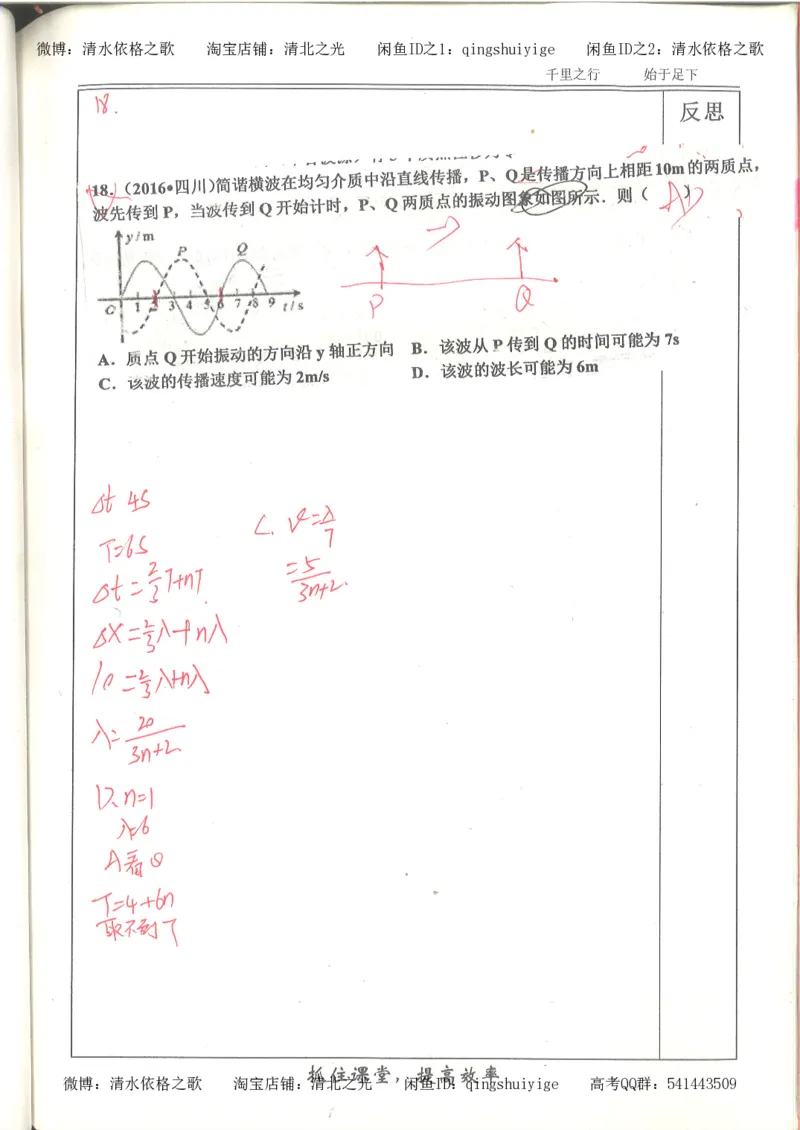 微博：清水依格之歌 淘宝店铺：清北之光 闲鱼ID之1：qingshuiyige 闲鱼ID之2：清水依格之歌
千里之行 始于足下
18.
反思
18．（2016•四川）简谐横波在均匀介质中沿直线传播，P、Q是传播方向上相距10m的两质点，
波先传到P，当波传到Q开始计时，P、Q两质点的振动图象如图所示．则（ AD ）
y/m
P Q
O 1 2 3 4 5 6 7 8 9 t/s
P Q
A．质点Q开始振动的方向沿y轴正方向 B．该波从P传到Q的时间可能为7s
C．该波的传播速度可能为2m/s D．该波的波长可能为6m
Δt 4s
T=6s
Δt=2/3T+nT
Δx=2/3λ+nλ
10=2/3λ+nλ
λ=
3n+2
C. v=λ/T
=5/3n+2.
D、n=1
λ=6
A看Q
T=4+6n
取不到7
抓住课堂，提高效率
微博：清水依格之歌 淘宝店铺：清北之光 闲鱼ID：qingshuiyige 高考QQ群：541443509